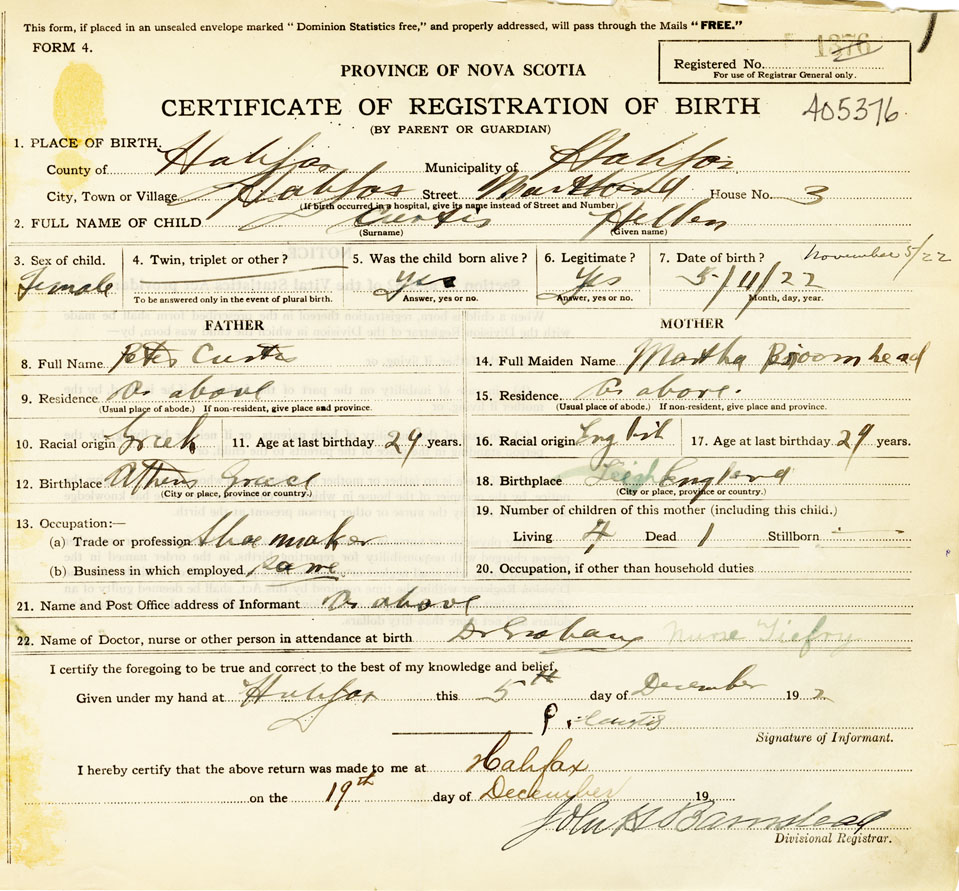 This form, if placed in an unsealed envelope marked “ Dominion Statistics free,” and properly addressed, will pass through the Mails “ FREE.”
FORM 4.
1376
Registered No.
For use of Registrar General only.
PROVINCE OF NOVA SCOTIA
CERTIFICATE OF REGISTRATION OF BIRTH
405376
(BY PARENT OR GUARDIAN)
1. PLACE OF BIRTH.
County of Halifax Municipality of Halifax
City, Town or Village Halifax Street House No. 3
(If birth occurred in a hospital, give its name instead of Street and Number)
2. FULL NAME OF CHILD Curtis Hellen
(Surname) (Given name)
3. Sex of child. 4. Twin, triplet or other ? 5. Was the child born alive ? 6. Legitimate ? 7. Date of birth ? November 5/22
Female yes Yes 5/11/22
To be answered only in the event of plural birth. Answer, yes or no. Answer, yes or no. Month, day, year.
FATHER MOTHER
8. Full Name Peter Curtis 14. Full Maiden Name Martha Broomhead
9. Residence As above 15. Residence As above.
(Usual place of abode.) If non-resident, give place and province. (Usual place of abode.) If non-resident, give place and province.
10. Racial origin Greek 11. Age at last birthday 29 years. 16. Racial origin English 17. Age at last birthday 29 years.
12. Birthplace Athens Greece 18. Birthplace Leigh England
(City or place, province or country.) (City or place, province or country.)
13. Occupation:— 19. Number of children of this mother (including this child.)
(a) Trade or profession Shoe maker Living 4 Dead 1 Stillborn
(b) Business in which employed same 20. Occupation, if other than household duties
21. Name and Post Office address of Informant As above
22. Name of Doctor, nurse or other person in attendance at birth Dr Graham Nurse
I certify the foregoing to be true and correct to the best of my knowledge and belief.
Given under my hand at Halifax this 5th day of December 192
P. Curtis
Signature of Informant.
I hereby certify that the above return was made to me at Halifax
on the 19th day of December 19
John H Barnstead
Divisional Registrar.